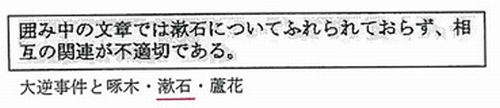 囲み中の文章では漱石についてふれられておらず、相
互の関連が不適切である。
大逆事件と啄木・漱石・蘆花